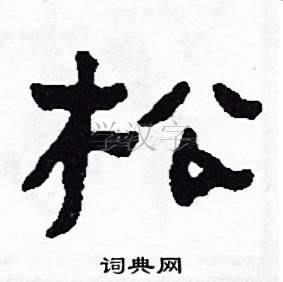 松
学汉字
词典网